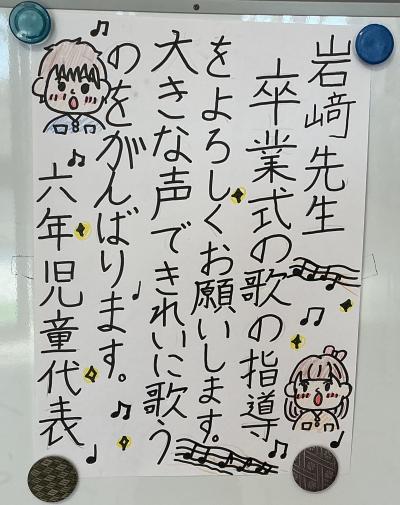 岩﨑先生
卒業式の歌の指導
をよろしくお願いします。
大きな声できれいに歌う
のをがんばります。
六年児童代表